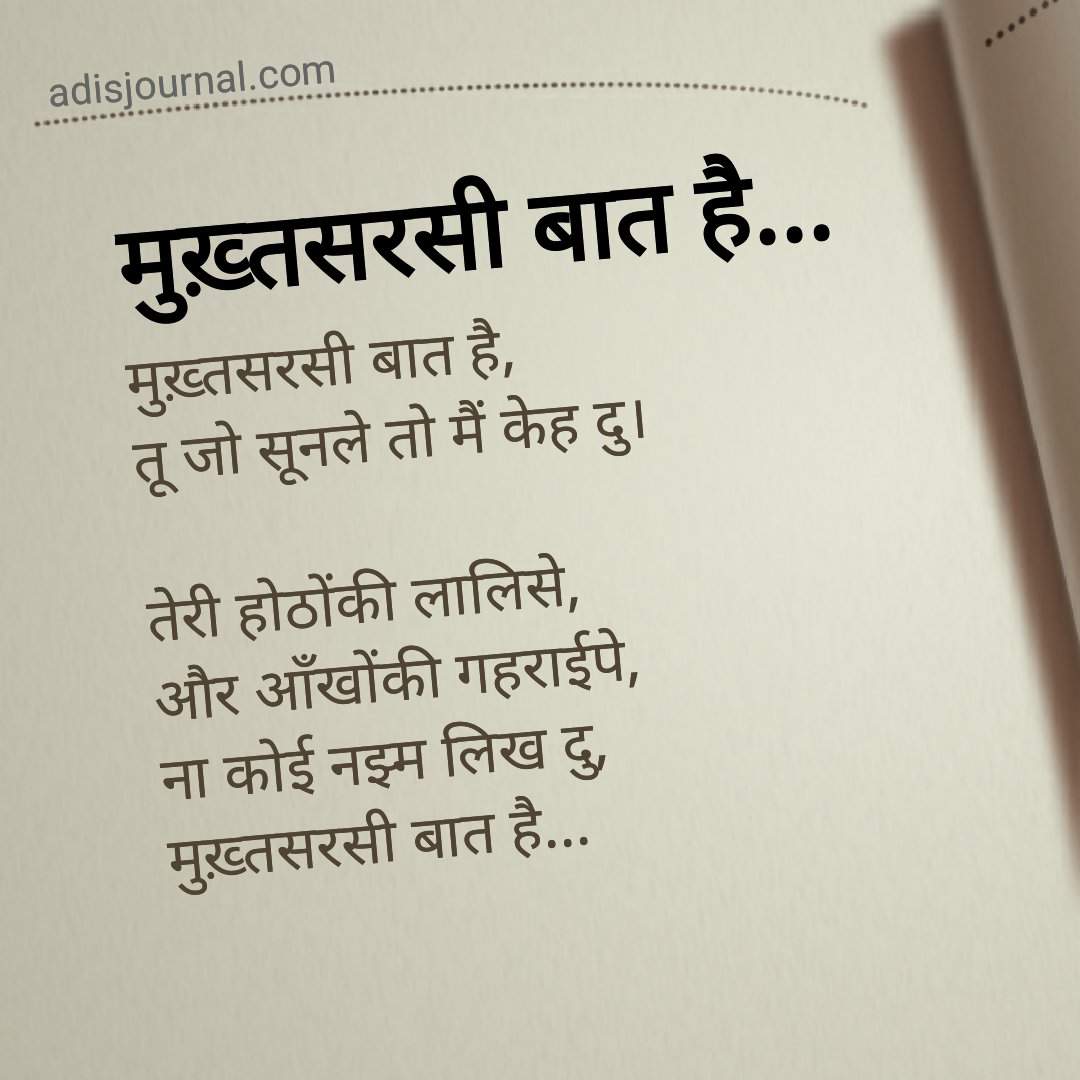 adisjournal.com
मुख़्तसरसी बात है...
मुख़्तसरसी बात है,
तू जो सूनले तो मैं केह दु।
तेरी होठोंकी लालिसे,
और आँखोंकी गहराईपे,
ना कोई नझ्म लिख दु,
मुख़्तसरसी बात है...